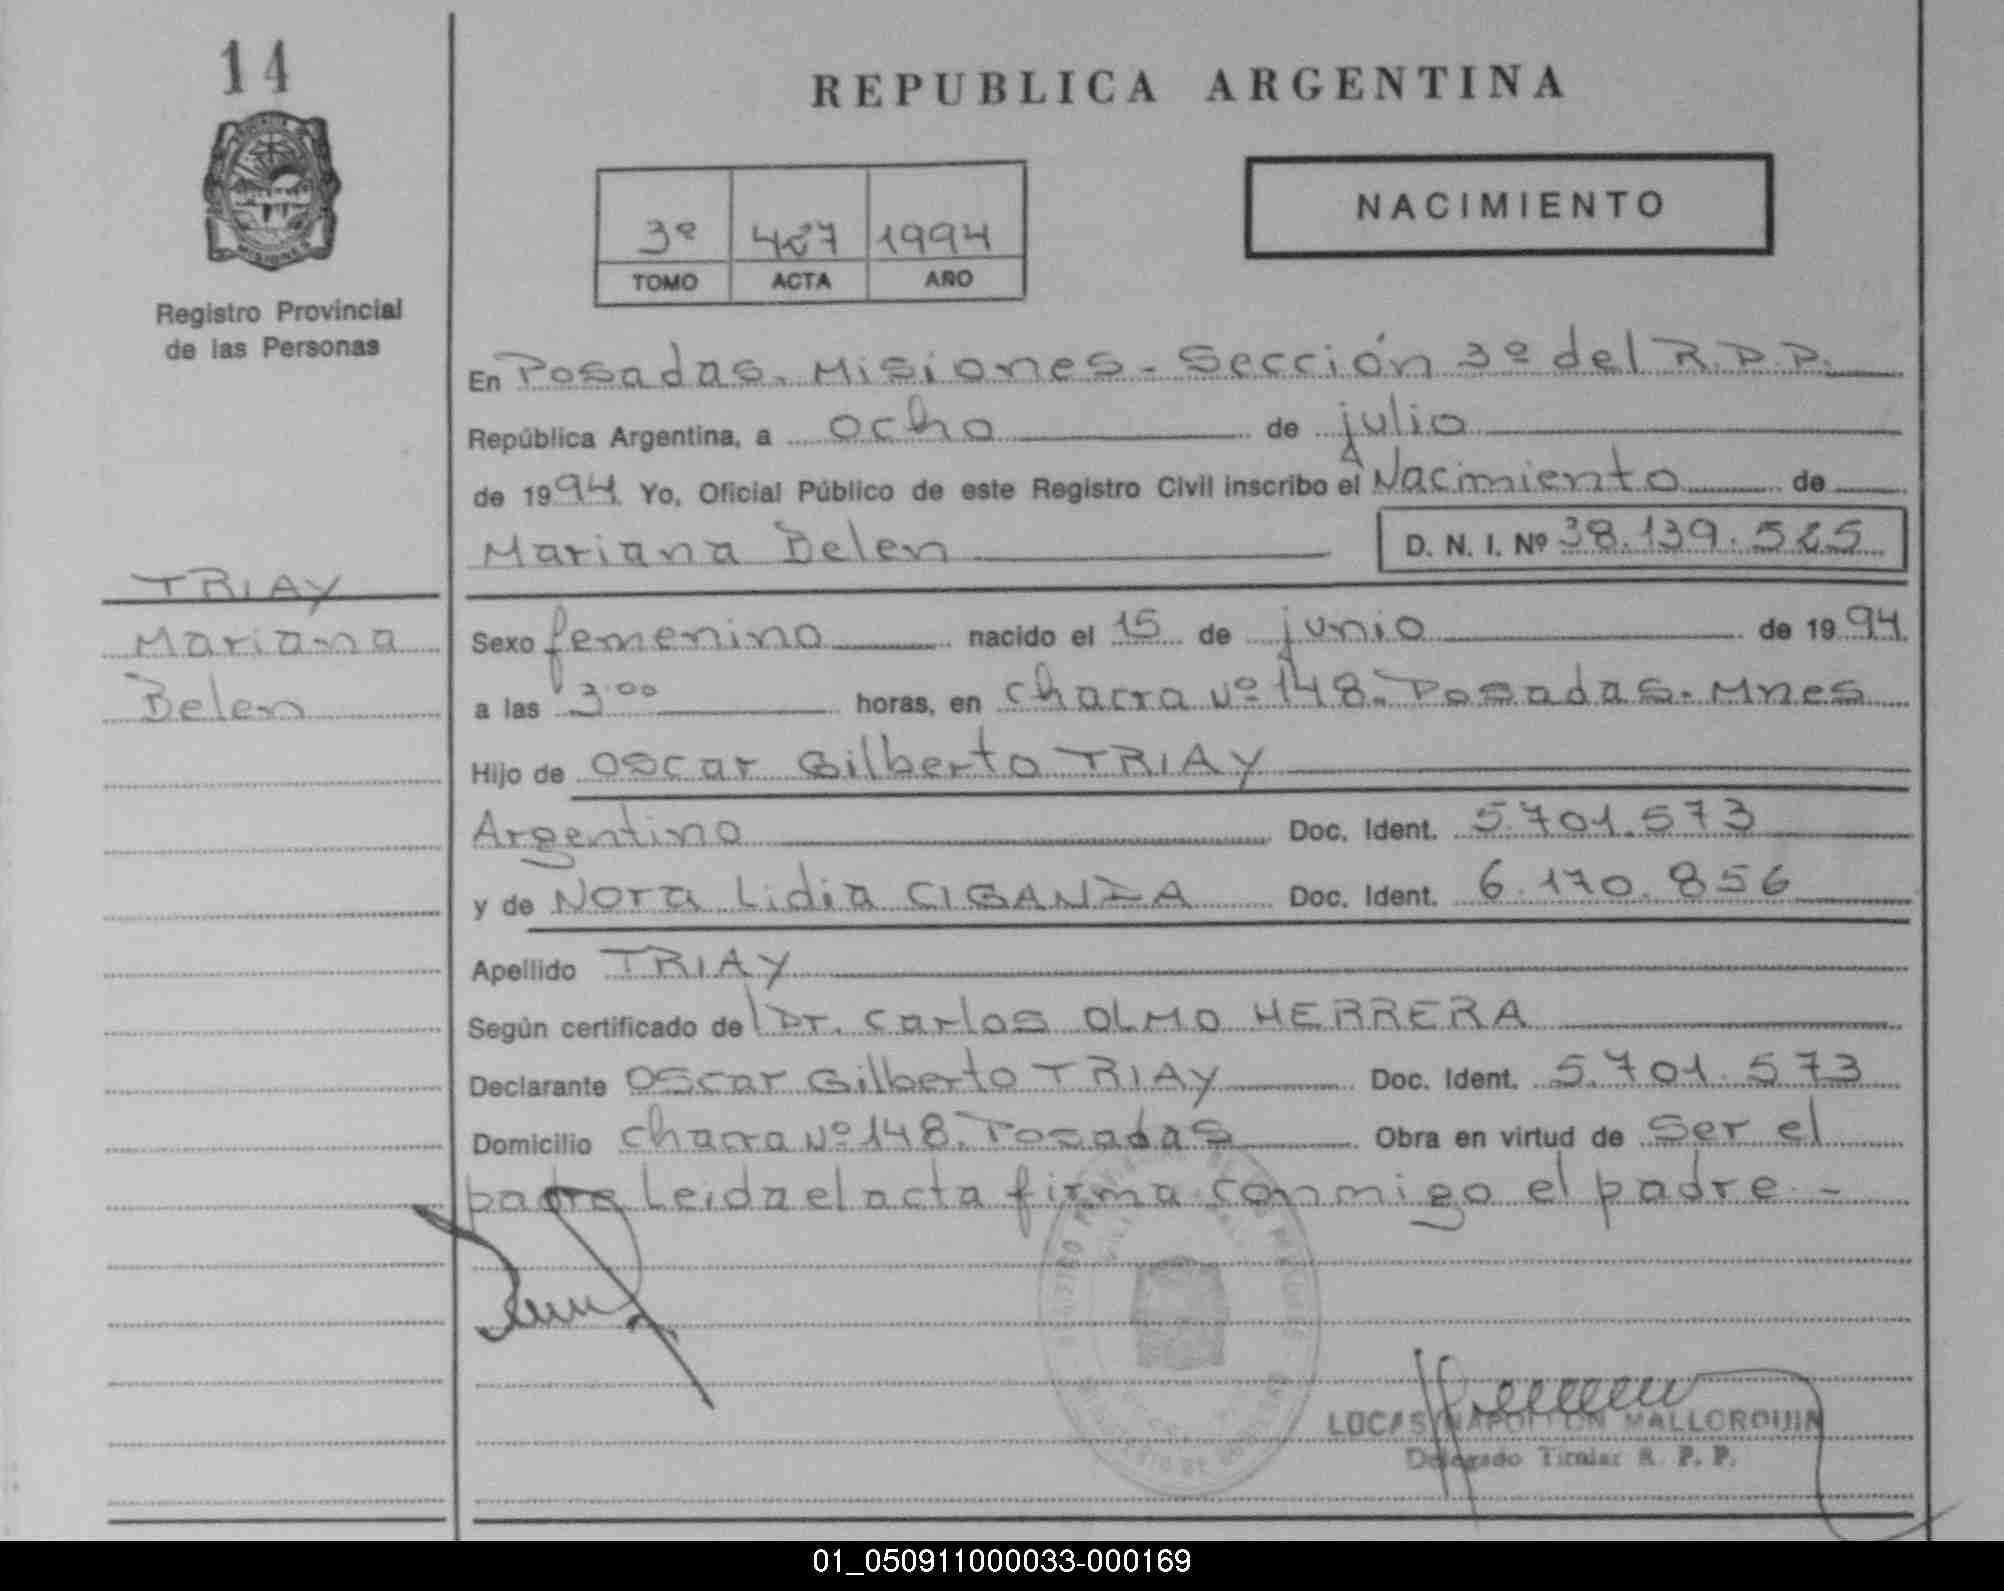 14
MISIONES
Registro Provincial
de las Personas
TRIAY
Mariana
Belen
REPUBLICA ARGENTINA
3º 427 1994
TOMO ACTA AÑO
NACIMIENTO
En Posadas. Misiones - Sección 3º del R.P.P.
República Argentina, a ocho de julio
de 1994. Yo, Oficial Público de este Registro Civil inscribo el Nacimiento de
Mariana Belen D. N. I. Nº 38.139.525
Sexo femenino nacido el 15 de junio de 1994.
a las 3:00 horas, en chacra Nº 148. Posadas. Mnes
Hijo de Oscar Gilberto TRIAY
Argentino Doc. Ident. 5.701.573
y de Nora Lidia CIGANDA Doc. Ident. 6.170.856
Apellido TRIAY
Según certificado de Dr. Carlos OLMO HERRERA
Declarante Oscar Gilberto TRIAY Doc. Ident. 5.701.573
Domicilio chacra Nº 148. Posadas Obra en virtud de ser el
padre Leida el acta firma conmigo el padre. -
LUCAS NAPOLEON MALLORQUIN
Delegado Titular R. P. P.
01_050911000033-000169